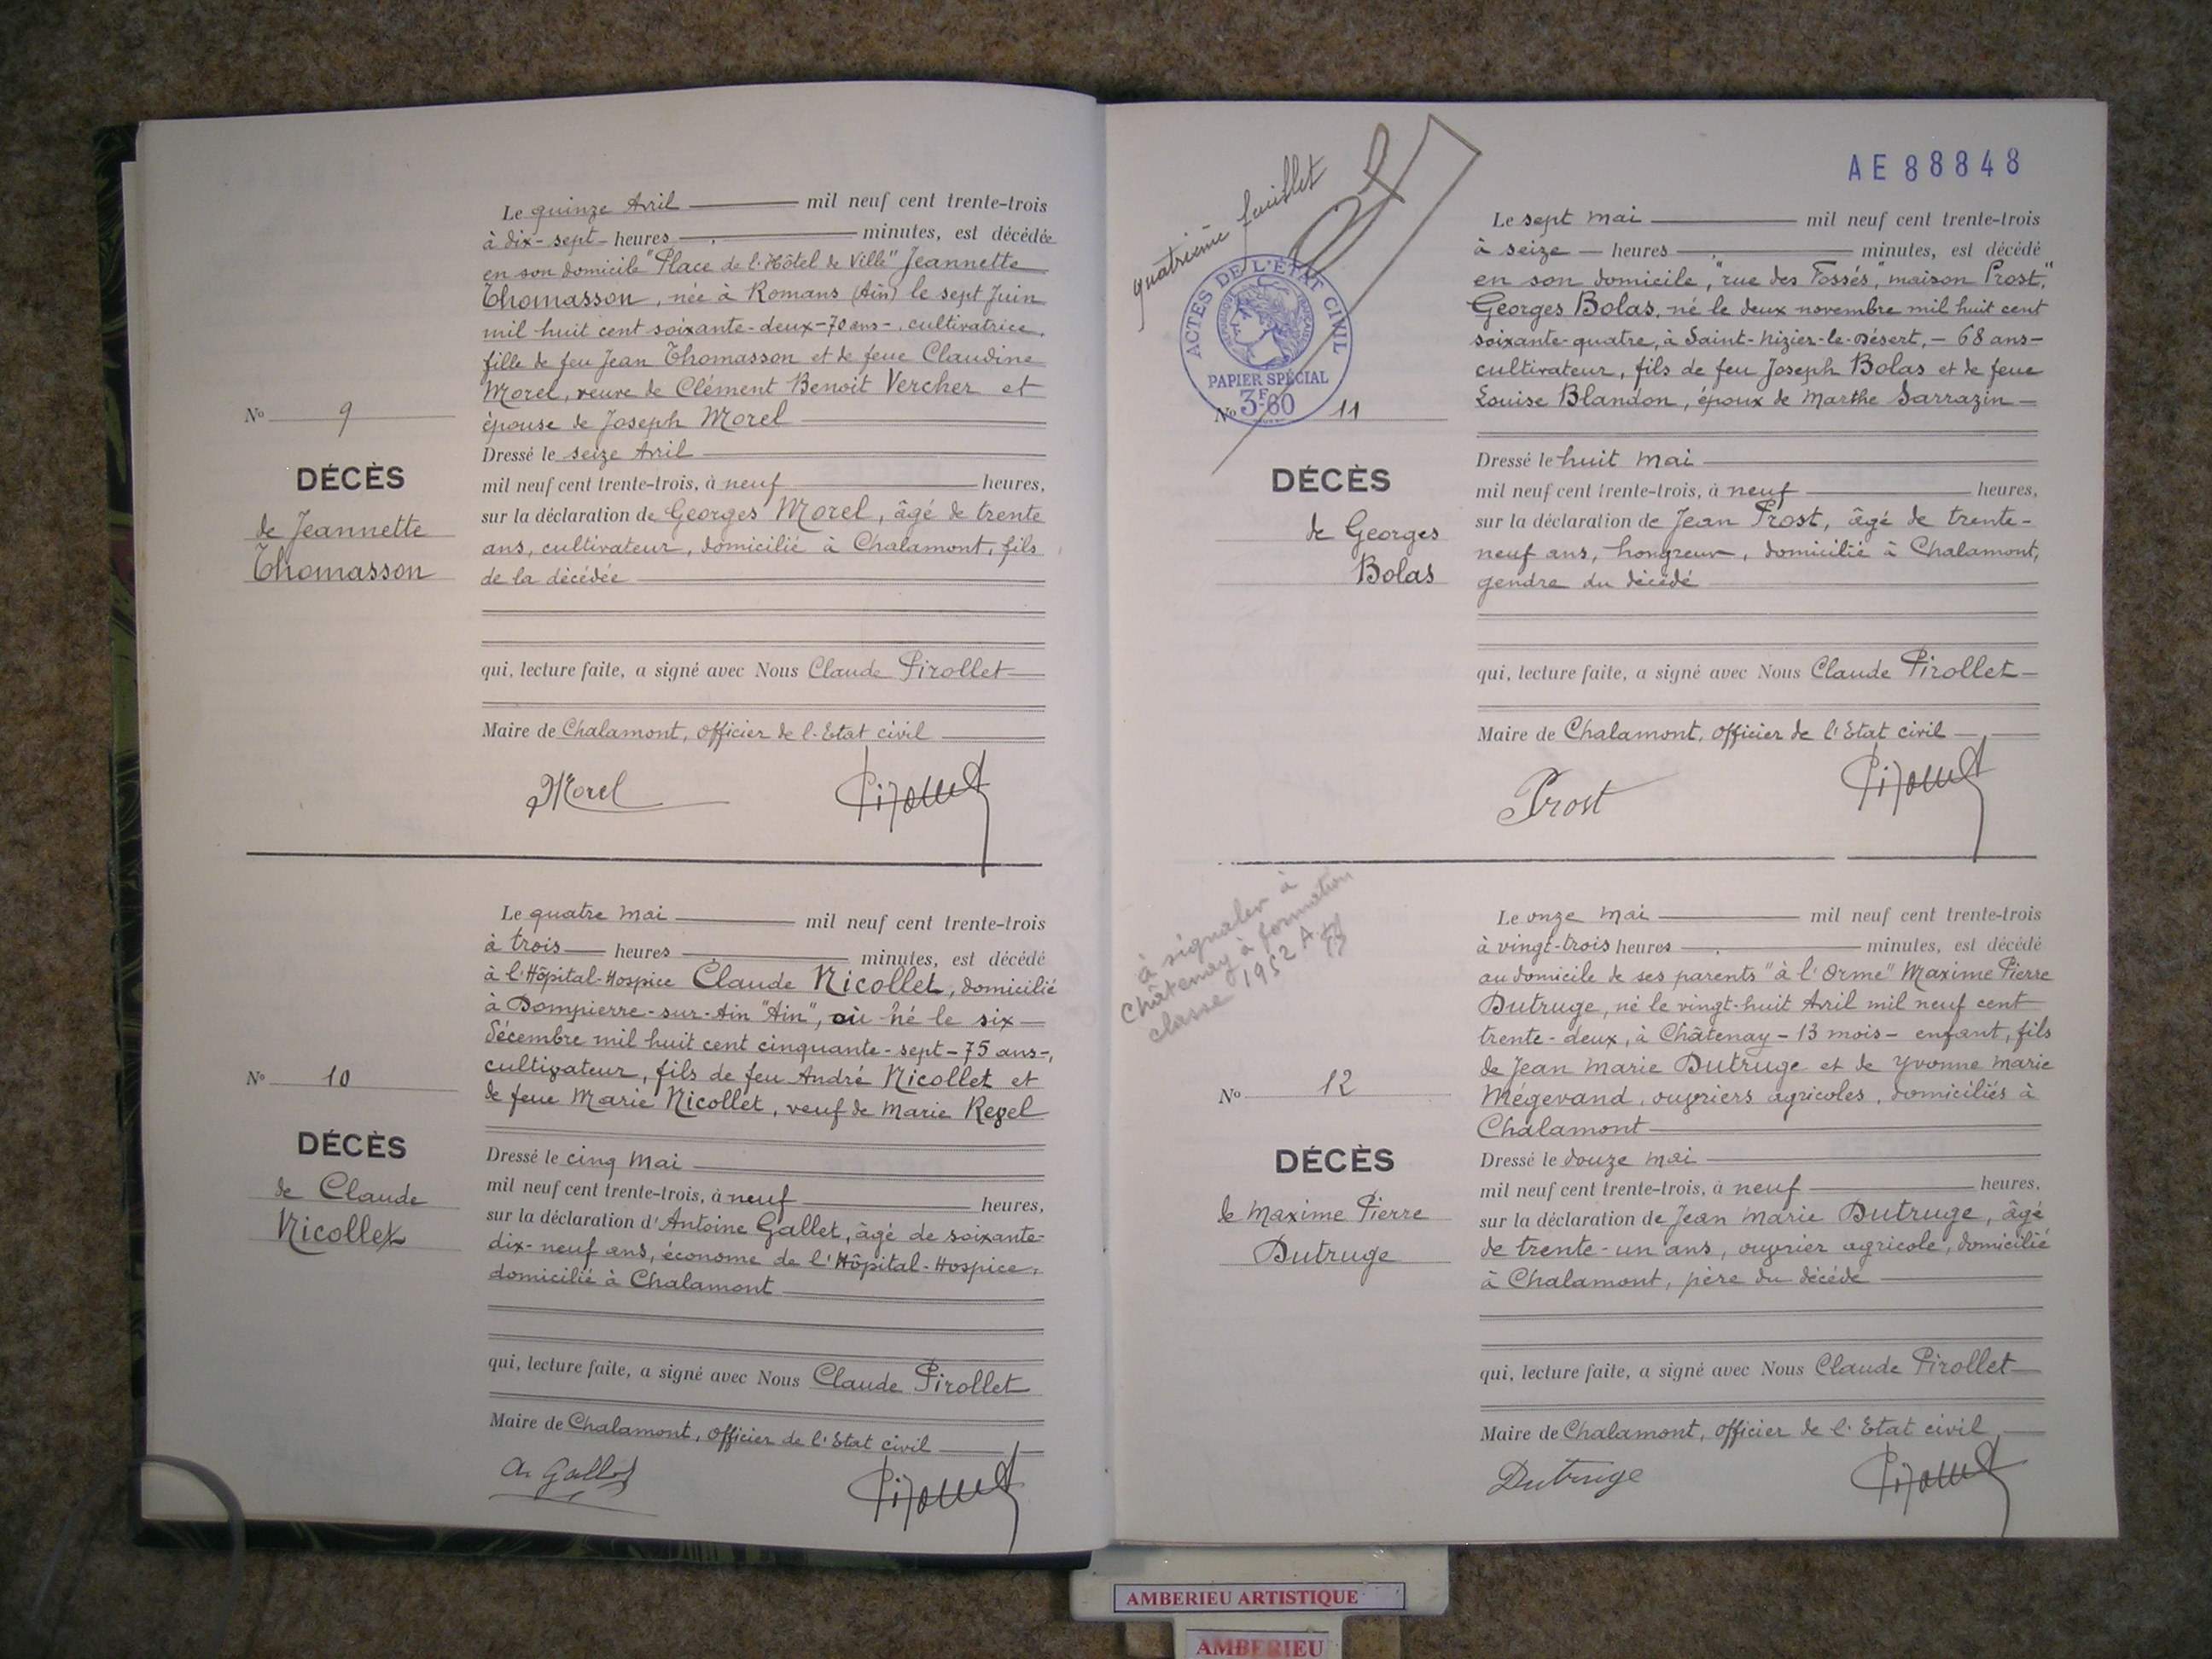 Le quinze Avril mil neuf cent trente-trois
à dix-sept heures minutes, est décédée
en son domicile "Place de l'Hôtel de Ville" Jeannette
Thomasson, née à Romans (Ain) le sept Juin
mil huit cent soixante-deux-70 ans-, cultivatrice,
fille de feu Jean Thomasson et de feue Claudine
Morel, veuve de Clément Benoit Vercher et
épouse de Joseph Morel
Dressé le seize Avril
mil neuf cent trente-trois, à neuf heures,
sur la déclaration de Georges Morel, âgé de trente
ans, cultivateur, domicilié à Chalamont, fils
de la décédée
qui, lecture faite, a signé avec Nous Claude Pirollet
Maire de Chalamont, officier de l'Etat civil
Morel
No 9
DÉCÈS
de Jeannette
Thomasson
Le quatre Mai mil neuf cent trente-trois
à trois heures minutes, est décédé
à l'Hôpital-Hospice Claude Nicollet, domicilié
à Dompierre-sur-Ain "Ain", où né le six
décembre mil huit cent cinquante-sept-75 ans-,
cultivateur, fils de feu André Nicollet et
de feue Marie Nicollet, veuf de Marie Regel
Dressé le cinq Mai
mil neuf cent trente-trois, à neuf heures,
sur la déclaration d'Antoine Gallet, âgé de soixante-
dix-neuf ans, économe de l'Hôpital-Hospice,
domicilié à Chalamont
qui, lecture faite, a signé avec Nous Claude Pirollet
Maire de Chalamont, officier de l'Etat civil
A. Gallet
No 10
DÉCÈS
de Claude
Nicollet
AE 88848
quatrième feuillet
ACTES DE L'ÉTAT CIVIL
PAPIER SPÉCIAL
3F.60
Le sept mai mil neuf cent trente-trois
à seize heures minutes, est décédé
en son domicile, "rue des Fossés, maison Prost",
Georges Bolas, né le deux novembre mil huit cent
soixante-quatre, à Saint-Nizier-le-Désert, - 68 ans-
cultivateur, fils de feu Joseph Bolas et de feue
Louise Blandon, époux de Marthe Sarrazin
Dressé le huit Mai
mil neuf cent trente-trois, à neuf heures,
sur la déclaration de Jean Prost, âgé de trente-
neuf ans, hongreur, domicilié à Chalamont,
gendre du décédé
qui, lecture faite, a signé avec Nous Claude Pirollet
Maire de Chalamont, officier de l'Etat civil
Prost
No 11
DÉCÈS
de Georges
Bolas
à signaler à
Châtenay à formation
classe 1952 A.
Le onze Mai mil neuf cent trente-trois
à vingt-trois heures minutes, est décédé
au domicile de ses parents "à l'Orme" Maxime Pierre
Dutruge, né le vingt-huit Avril mil neuf cent
trente-deux, à Châtenay - 13 mois - enfant, fils
de Jean Marie Dutruge et de Yvonne Marie
Mégevand, ouvriers agricoles, domiciliés à
Chalamont
Dressé le douze Mai
mil neuf cent trente-trois, à neuf heures,
sur la déclaration de Jean Marie Dutruge, âgé
de trente-un ans, ouvrier agricole, domicilié
à Chalamont, père du décédé
qui, lecture faite, a signé avec Nous Claude Pirollet
Maire de Chalamont, officier de l'Etat civil
Dutruge
No 12
DÉCÈS
de Maxime Pierre
Dutruge
AMBERIEU ARTISTIQUE
AMBERIEU